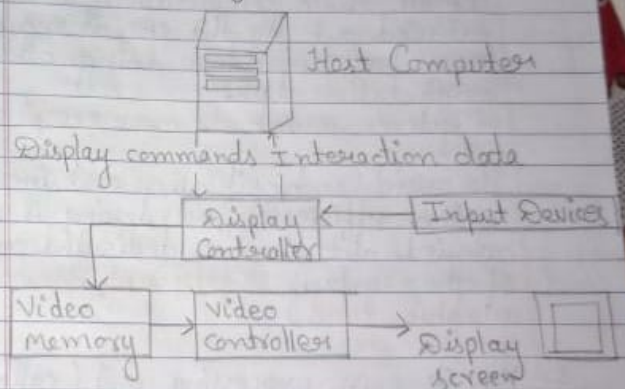 Host Computer
Display commands Interaction data
Display
Controller
Input Devices
Video
memory
video
controller
Display
screen